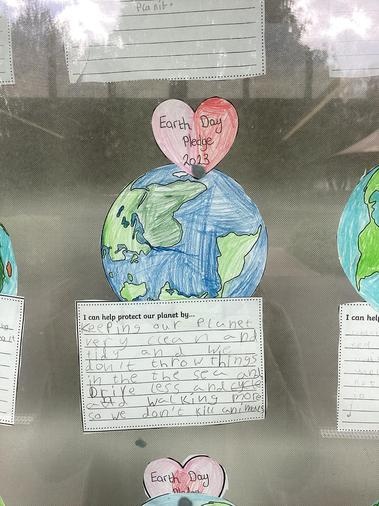 Planit.
Earth Day
Pledge
2023
I can help protect our planet by...
keeping our Planet
very clean and
tidy and we
don't throw things
in the the sea and
Drive less and cycle
and walking more
so we don't kill animals
I can help
Earth Day
Pledge